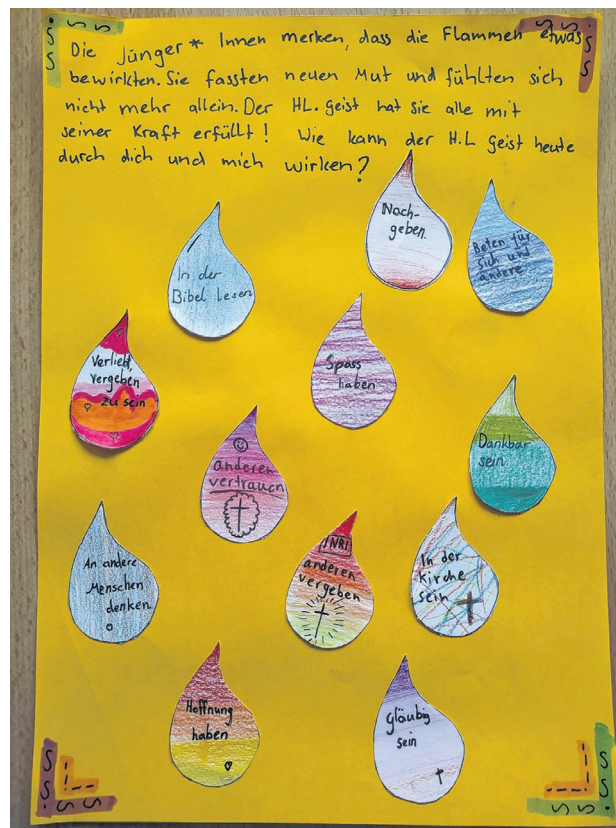 Die Jünger* Innen merken, dass die Flammen etwas
bewirkten. Sie fassten neuen Mut und fühlten sich
nicht mehr allein. Der HL. geist hat sie alle mit
seiner Kraft erfüllt! Wie kann der H.L geist heute
durch dich und mich wirken?
Nach-
geben
Beten für
sich und
andere
In der
Bibel Lesen
Verliebt,
vergeben
zu sein
Spass
haben
Dankbar
sein
anderen
vertrauen
An andere
Menschen
denken
INRI
anderen
vergeben
In der
Kirche
sein
Hoffnung
haben
gläubig
sein